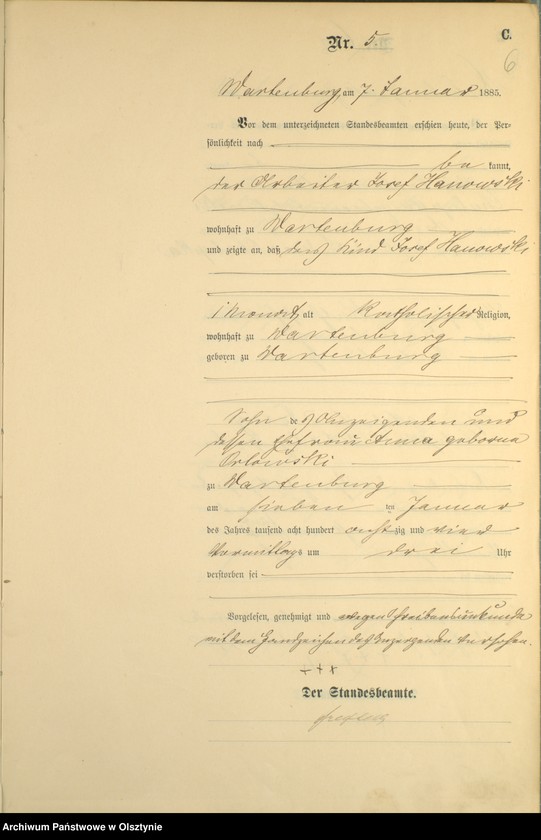 C.
Nr. 5.
6
Wartenburg, am 7. Januar 1885.
Vor dem unterzeichneten Standesbeamten erschien heute, der Per-
sönlichkeit nach
be kannt,
der Arbeiter Josef Hanowski
wohnhaft zu Wartenburg
und zeigte an, daß das Kind Josef Hanowski
1 Monat, alt katholischer Religion,
wohnhaft zu Wartenburg
geboren zu Wartenburg
Sohn des Anzeigenden und
dessen Ehefrau Anna geborne
Orlowski
zu Wartenburg
am sieben ten Januar
des Jahres tausend acht hundert achtzig und vier
Vormittags um drei Uhr
verstorben sei
Vorgelesen, genehmigt und wegen Schreibensunkunde
mit dem Handzeichen des Anzeigenden versehen.
+++
Der Standesbeamte.
Archiwum Państwowe w Olsztynie